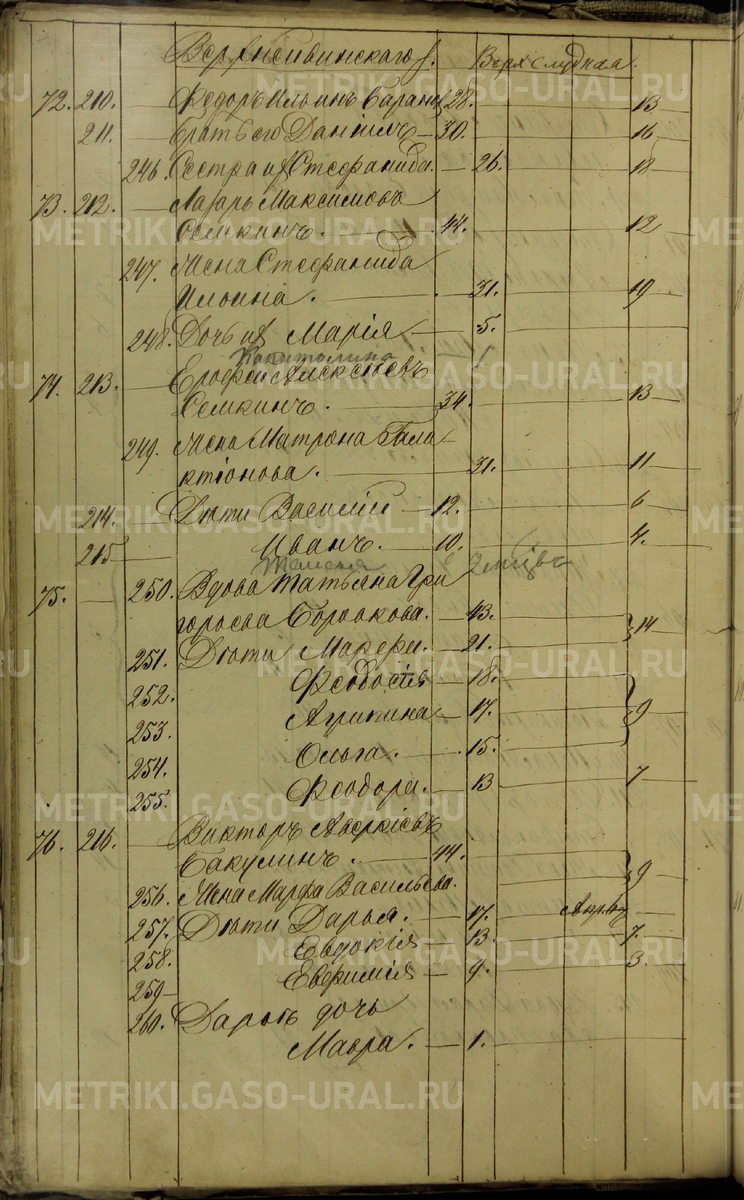 Верхнейвинскаго з. Верхъ слудная
72. 210. Федоръ Ильинъ Баран 28. 13
211. братъ его Даніилъ 30. 16
246. Сестра их Стефанида. 26. 18
73. 212. Лазарь Максимовъ
Семкинъ. 44. 12
247. Жена Стефанида
Ильина. 31. 19
248. Дочь их Марія 5.
Капитолина 1
74. 213. Ерофей Алексѣевъ
Семкинъ. 34. 13
249. Жена Матрона Гала
ктіонова. 31. 11
214. Дѣти Василій 12. 6
215 Иванъ. 10. 4.
75. 250. Вдова Татьяна Гри
горьева Бороткова. 43. 14
251. Дѣти Мареѳи. 21.
252. Ѳеодосія 18.
253. Агрипина 17. 9
254. Ольга. 15.
255. Ѳеодора. 13 7
76. 216. Викторъ Аверкіевъ
Бакулинъ. 44. 9
256. Жена Марфа Васильева.
257. Дѣти Дарья. 17.
258. Евдокія 13. 7.
259 Евфимія 9. 3.
260. Дарьи дочь
Мавра. 1.
METRIKI.GASO-URAL.RU